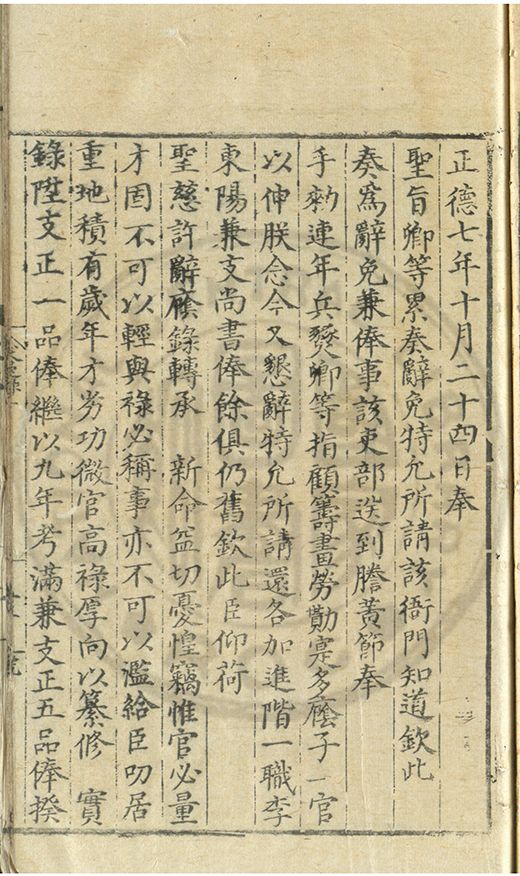 正德七年十月二十四日奉
聖旨卿等累奏辭免特允所請該衙門知道欽此
奏爲辭免兼俸事該吏部送到謄黃節奉
手敕連年兵燹卿等指顧籌畫勞勩寔多廕子一官
以伸朕念今又懇辭特允所請還各加進階一職李
東陽兼支尚書俸餘俱仍舊欽此臣仰荷
聖慈許辭廕錄轉承 新命益切憂惶竊惟官必量
才固不可以輕與祿必稱事亦不可以濫給臣叨居
重地積有歲年才劣功微官高祿厚向以纂修 實
錄陞支正一品俸繼以九年考滿兼支正五品俸揆